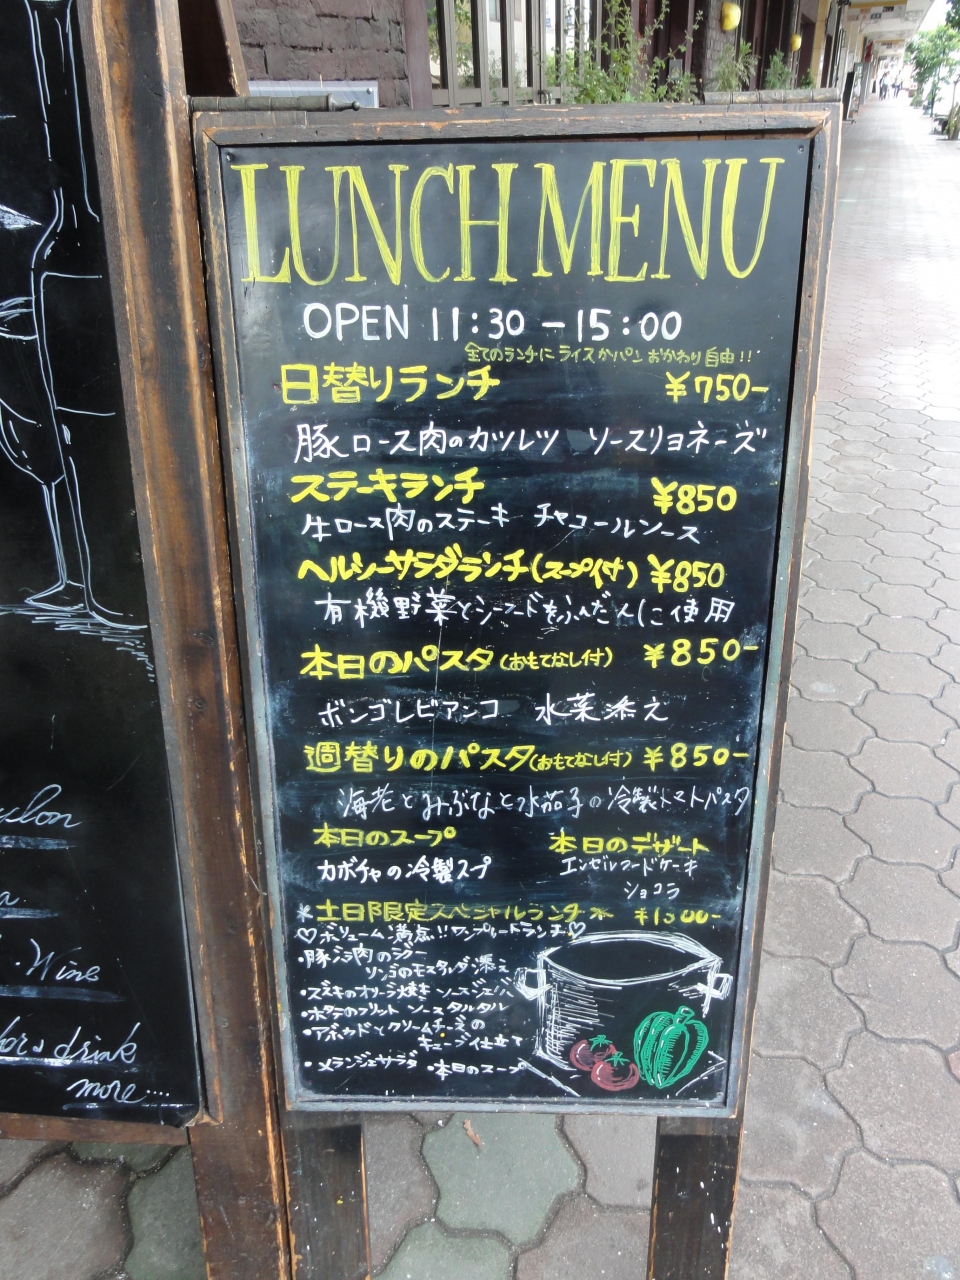 LUNCH MENU
OPEN 11:30 -15:00
全てのランチに ライスかパン おかわり自由!!
日替りランチ ¥750-
豚ロース肉のカツレツ ソースリヨネーズ
ステーキランチ ¥850
牛ロース肉のステーキ チャコールソース
ヘルシーサラダランチ(スープ付) ¥850
有機野菜とシーフードをふんだんに使用
本日のパスタ(おもてなし付) ¥850-
ボンゴレビアンコ 水菜添え
週替りのパスタ(おもてなし付) ¥850-
海老とみぶなと水茄子の冷製トマトパスタ
本日のスープ
カボチャの冷製スープ
本日のデザート
エンゼルフードケーキ
ショコラ
*土日限定スペシャルランチ* ¥1300-
♡ボリューム満点!!ワンプレートランチ♡
・豚バラ肉のラグー
リンゴのモスタルダ添え
・スズキのオリーブ焼き ソース
・ホタテのフリット ソースタルタル
・アボカドとクリームチーズの
キューブ仕立て
・メランジェサラダ ・本日のスープ
Wine
drink
more....